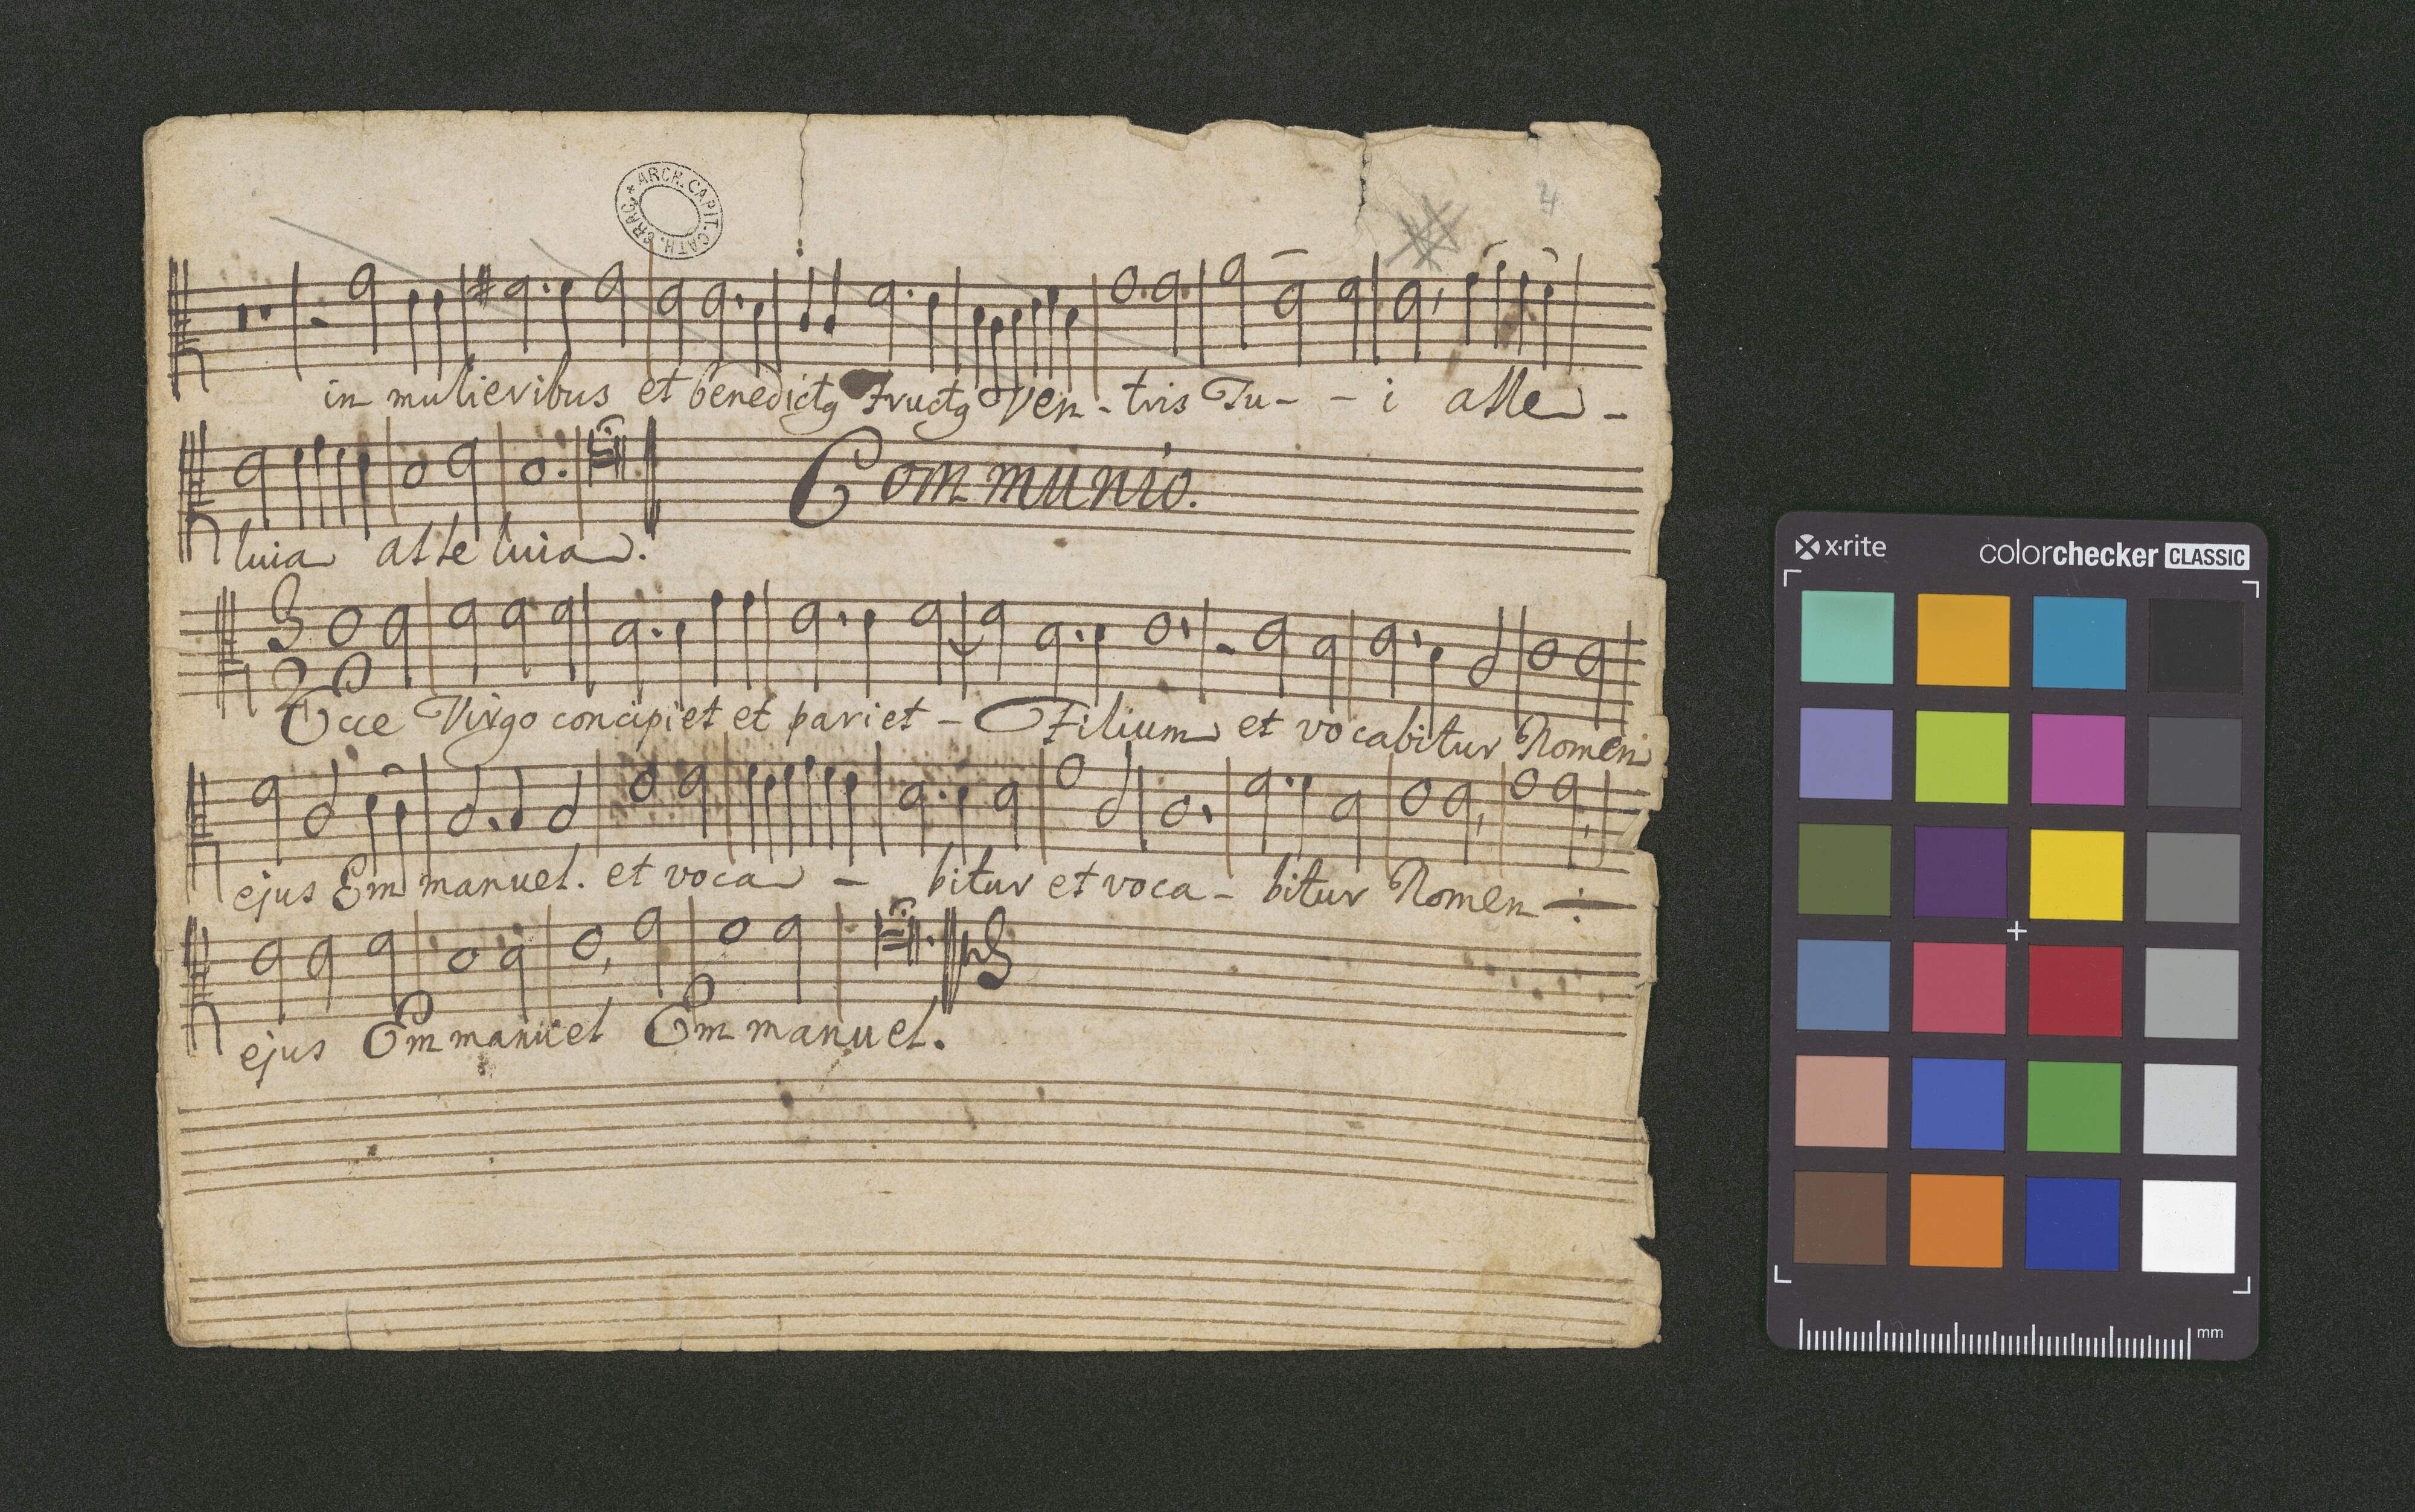 ARCH. CAPIT. CATH. CRAC. *
4
in mulieribus et benedictꝯ Fructꝯ Ven - tris Tu - - i alle -
Communio.
luia alleluia.
3
2
Ecce Virgo concipiet et pariet - Filium et vocabitur Nomen
ejus Emmanuel. et voca - bitur et voca - bitur Nomen ÷
ejus Emmanuel Emmanuel.
x·rite
colorchecker CLASSIC
mm